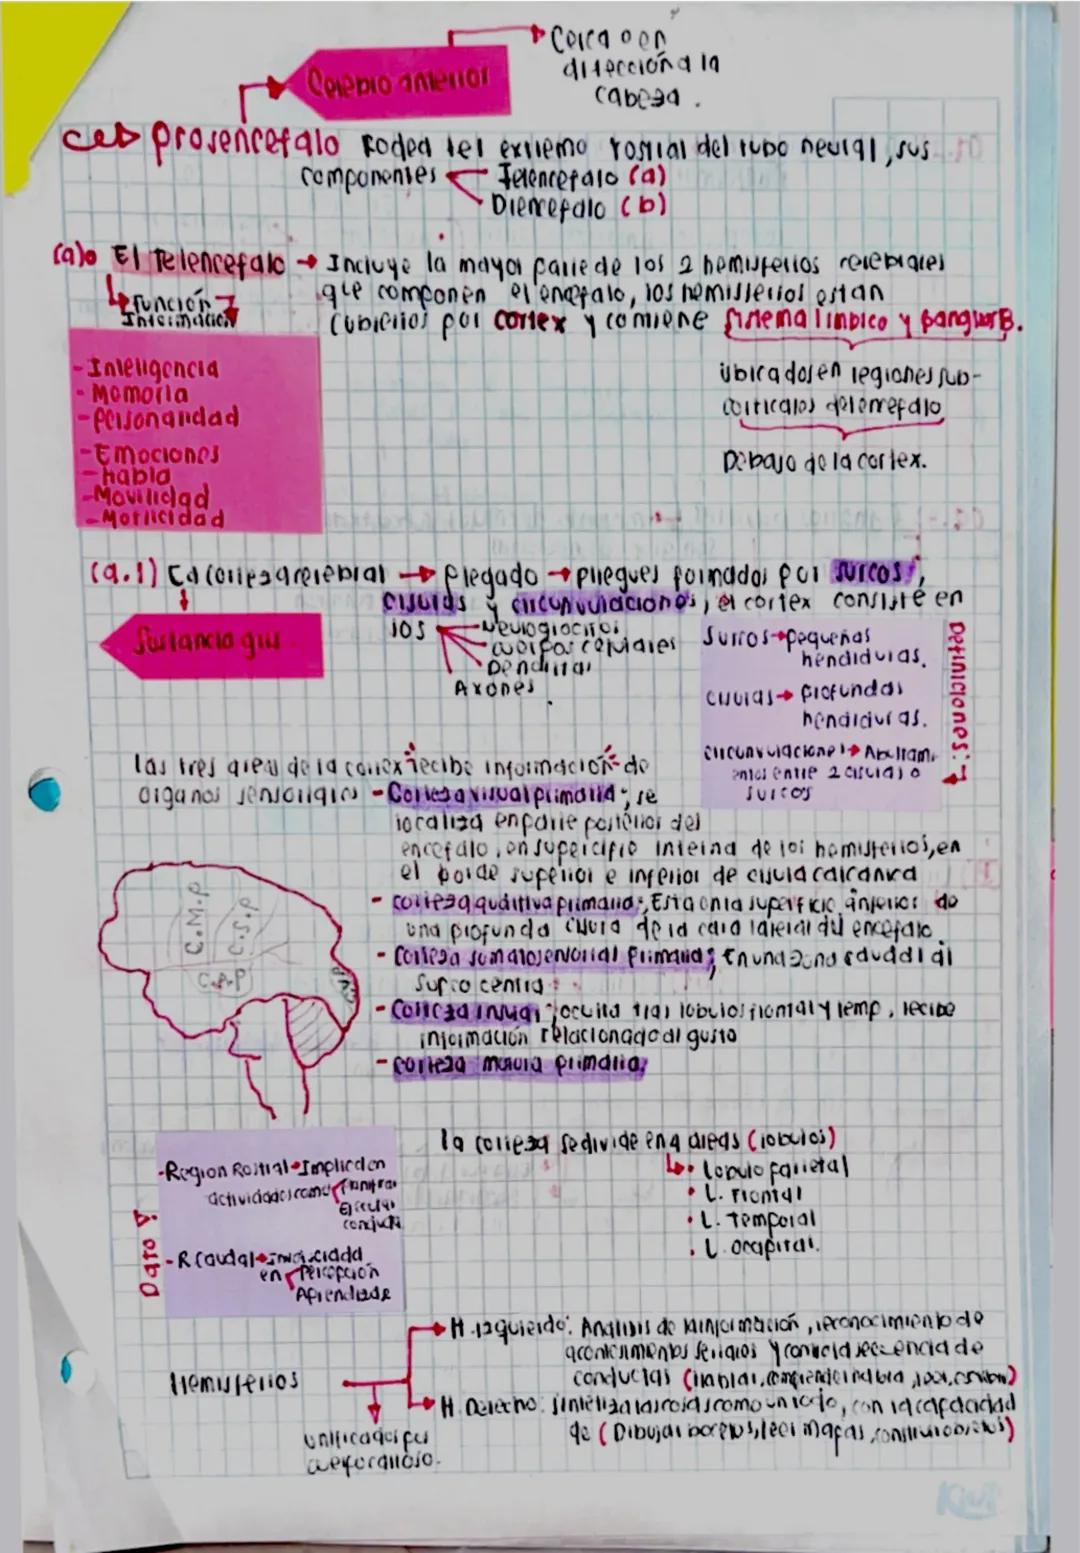 Cerca o en
dirección a la
cabeza.
Cerebro anterior
prosencefalo Rodea tel extremo rostral del tubo neural, sus
componentes Telencefalo (a)
Diencefalo (b)
(a) El Telencefalo → Incluye la mayor parte de los 2 hemisferios cerebrales
que componen el encefalo, los hemisferios estan
cubiertos por cortex y contiene sistema limbico y gangliosB.
Función
Información
- Inteligencia
- Memoria
- personalidad
- Emociones
- habla
- Movilidad
- Motricidad
Ubicados en regiones sub-
corticales del encefalo
Debajo de la cortex.
(a.1) La corteza cerebral → Plegado → pliegues formados por surcos,
cisuras y circunvulaciones, el cortex consiste en
los Neuroglocitos
cuerpos celulares
Dendritas
Axones.
Sustancia gris
Definiciones:
Surcos → pequeñas
hendiduras.
cisuras → profundas
hendiduras.
circunvulaciones → Abultam.
entos entre 2 cisuras o
surcos
las tres areas de la cortex recibe información de
organos sensoriales - Corteza visual primaria; se
localiza en parte posterior del
encefalo, en superficie interna de los hemisferios, en
el borde superior e inferior de cisura calcárica
- corteza auditiva primaria; Esta en la superficie inferior de
una profunda cisura de la cara lateral del encefalo.
- Corteza somatosensorial Primaria; En una zona caudal al
surco central
- Corteza insular; oculta tras lobulos frontal y temp, recibe
información relacionado al gusto
- corteza motora primaria;
C.M.P
C.S.P
C.A.P
CVP
la corteza se divide en 4 areas (lobulos)
• Lobulo parietal
• L. Frontal
• L. Temporal
• L. occipital.
Dato
- Region Rostral → Implicada en
actividades como
conducta
- R Caudal →
en Percepción
Aprendizaje
Hemisferios
unificados por
cuerpo calloso.
H. izquierdo: Analisis de la información, reconocimiento de
acontecimientos seriados y controla secuencia de
conductas (hablar, comprender habla, leer, escribir)
H. Derecho: sintetiza las cosas como un todo, con la capacidad
de (Dibujar bocetos, leer mapas, construir objetos)